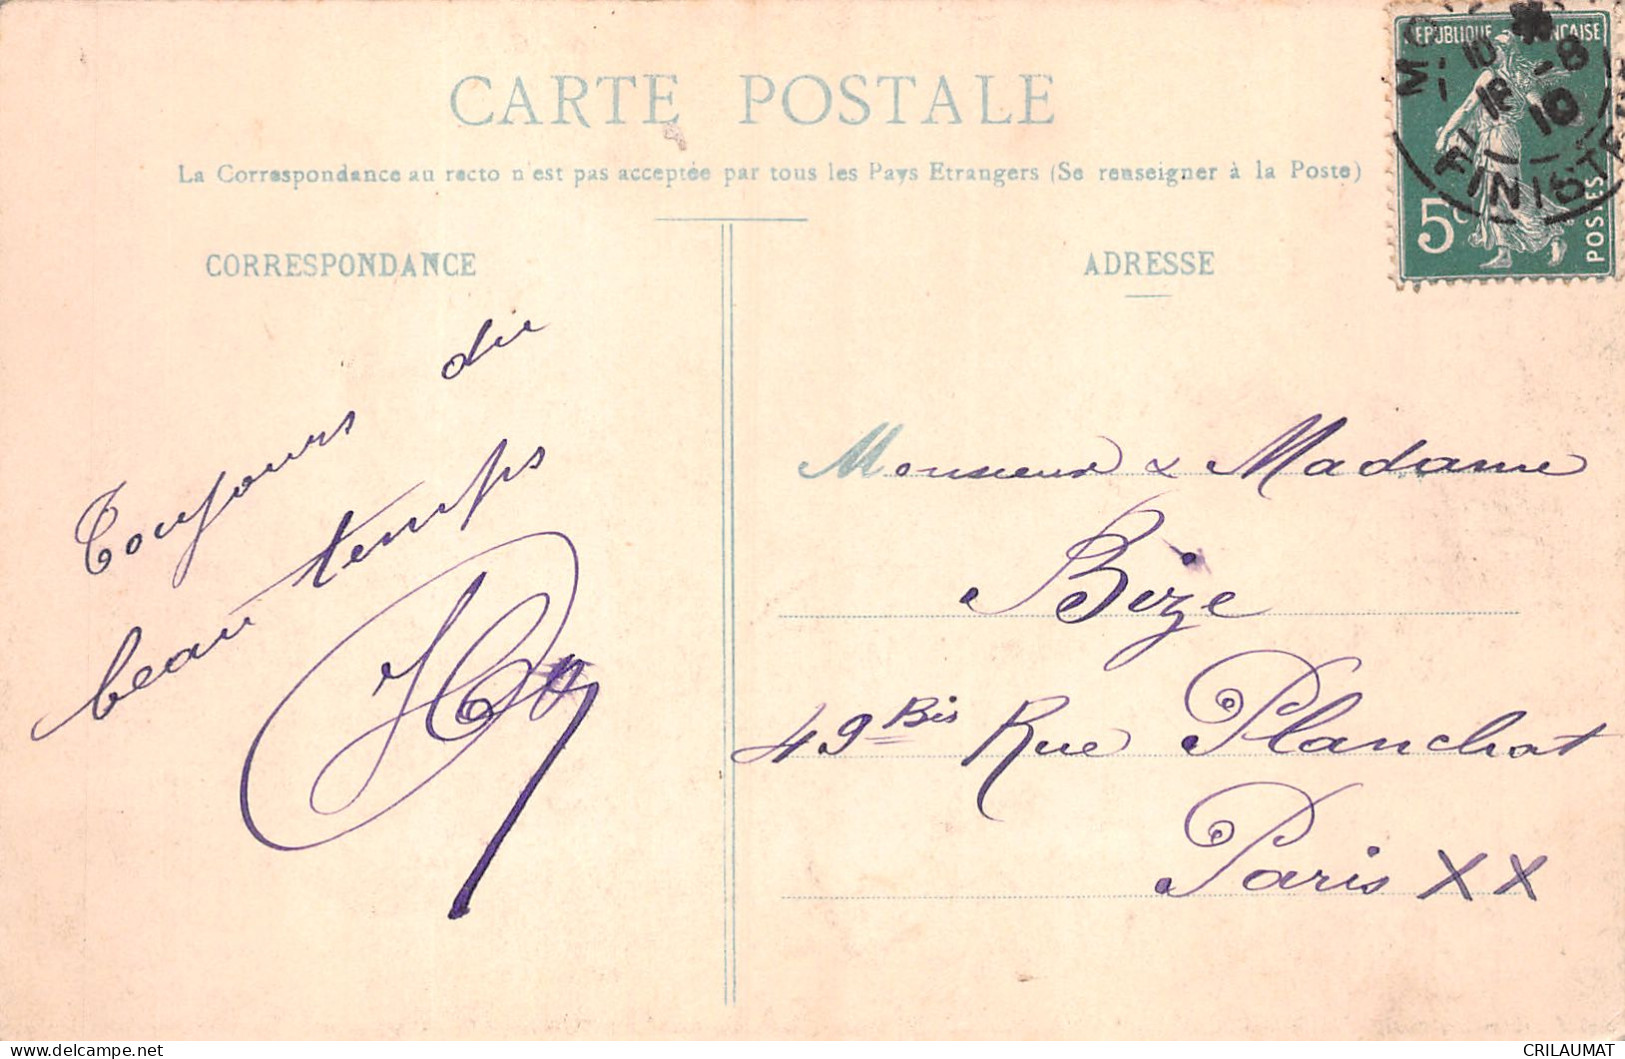 CARTE POSTALE
La Correspondance au recto n'est pas acceptée par tous les Pays Etrangers (Se renseigner à la Poste)
CORRESPONDANCE
ADRESSE
REPUBLIQUE FRANÇAISE
5c
POSTES
10 -8
10
FINISTERE
Toujours du
beau temps
Monsieur & Madame
Bize
49 Bis Rue Planchat
Paris XX
CRILAUMAT